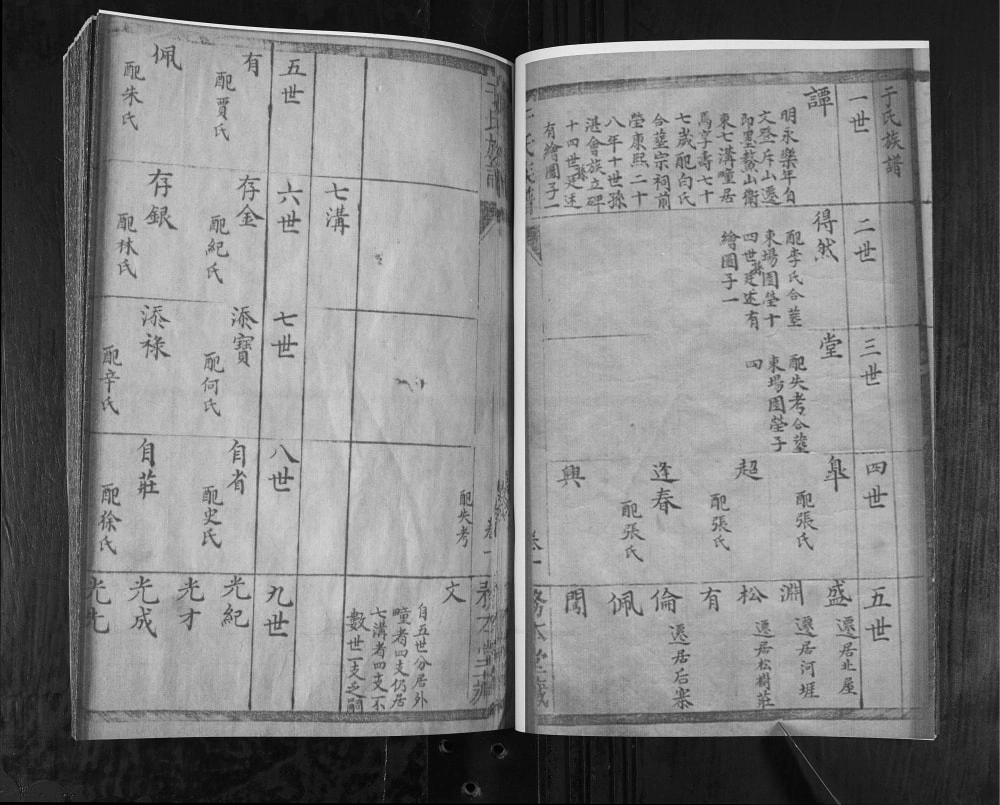 于氏族譜
一世
譚
明永樂年自
文登斥山遷
即墨鰲山衛
東七溝疃居
焉享壽七十
七歲配向氏
合塟宗祠前
塋康熙二十
八年十世孫
湛會族立碑
十四世孫廷迋
有繪圖子一
二世
得然
配李氏合塟
東場園塋十
四世孫廷迋有
繪圖子一
三世
堂
配失考合塟
東場園塋子
四
四世
皐
配張氏
超
配張氏
逢春
配張氏
興
五世
盛
遷居北屋
淵
遷居河堐
松
遷居松樹莊
有
倫
遷居石寨
佩
閏
于氏族譜
卷一
務本堂藏
配失考
文
自五世分居外
疃者四支仍居
七溝者四支一不
數世一支乏嗣
七溝
五世
有
配賈氏
佩
配朱氏
六世
存金
配紀氏
存銀
配林氏
七世
添寶
配何氏
添祿
配辛氏
八世
自省
配史氏
自莊
配徐氏
九世
光紀
光才
光成
光先